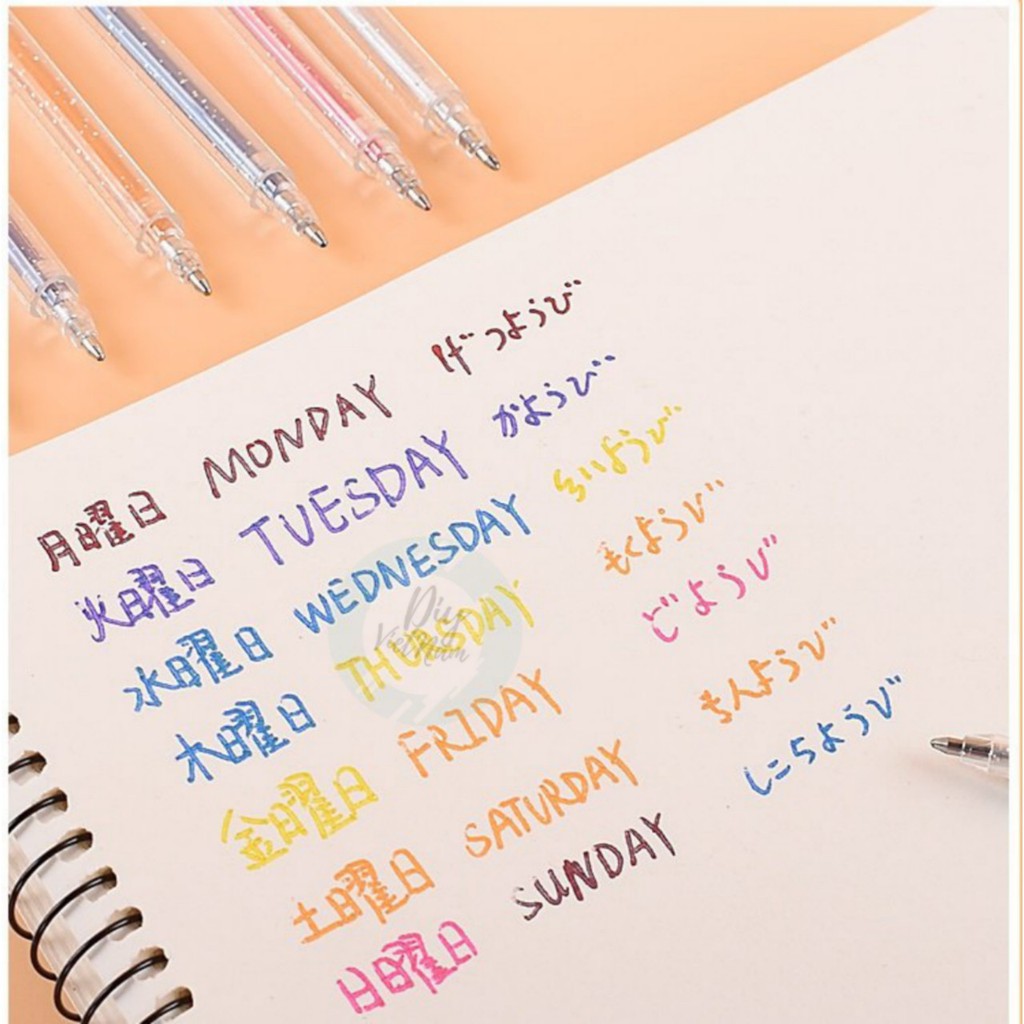 月曜日 MONDAY げつようび
火曜日 TUESDAY かようび
水曜日 WEDNESDAY すいようび
木曜日 THURSDAY もくようび
金曜日 FRIDAY どようび
土曜日 SATURDAY きんようび
日曜日 SUNDAY しこちようび
Diy
VietNam